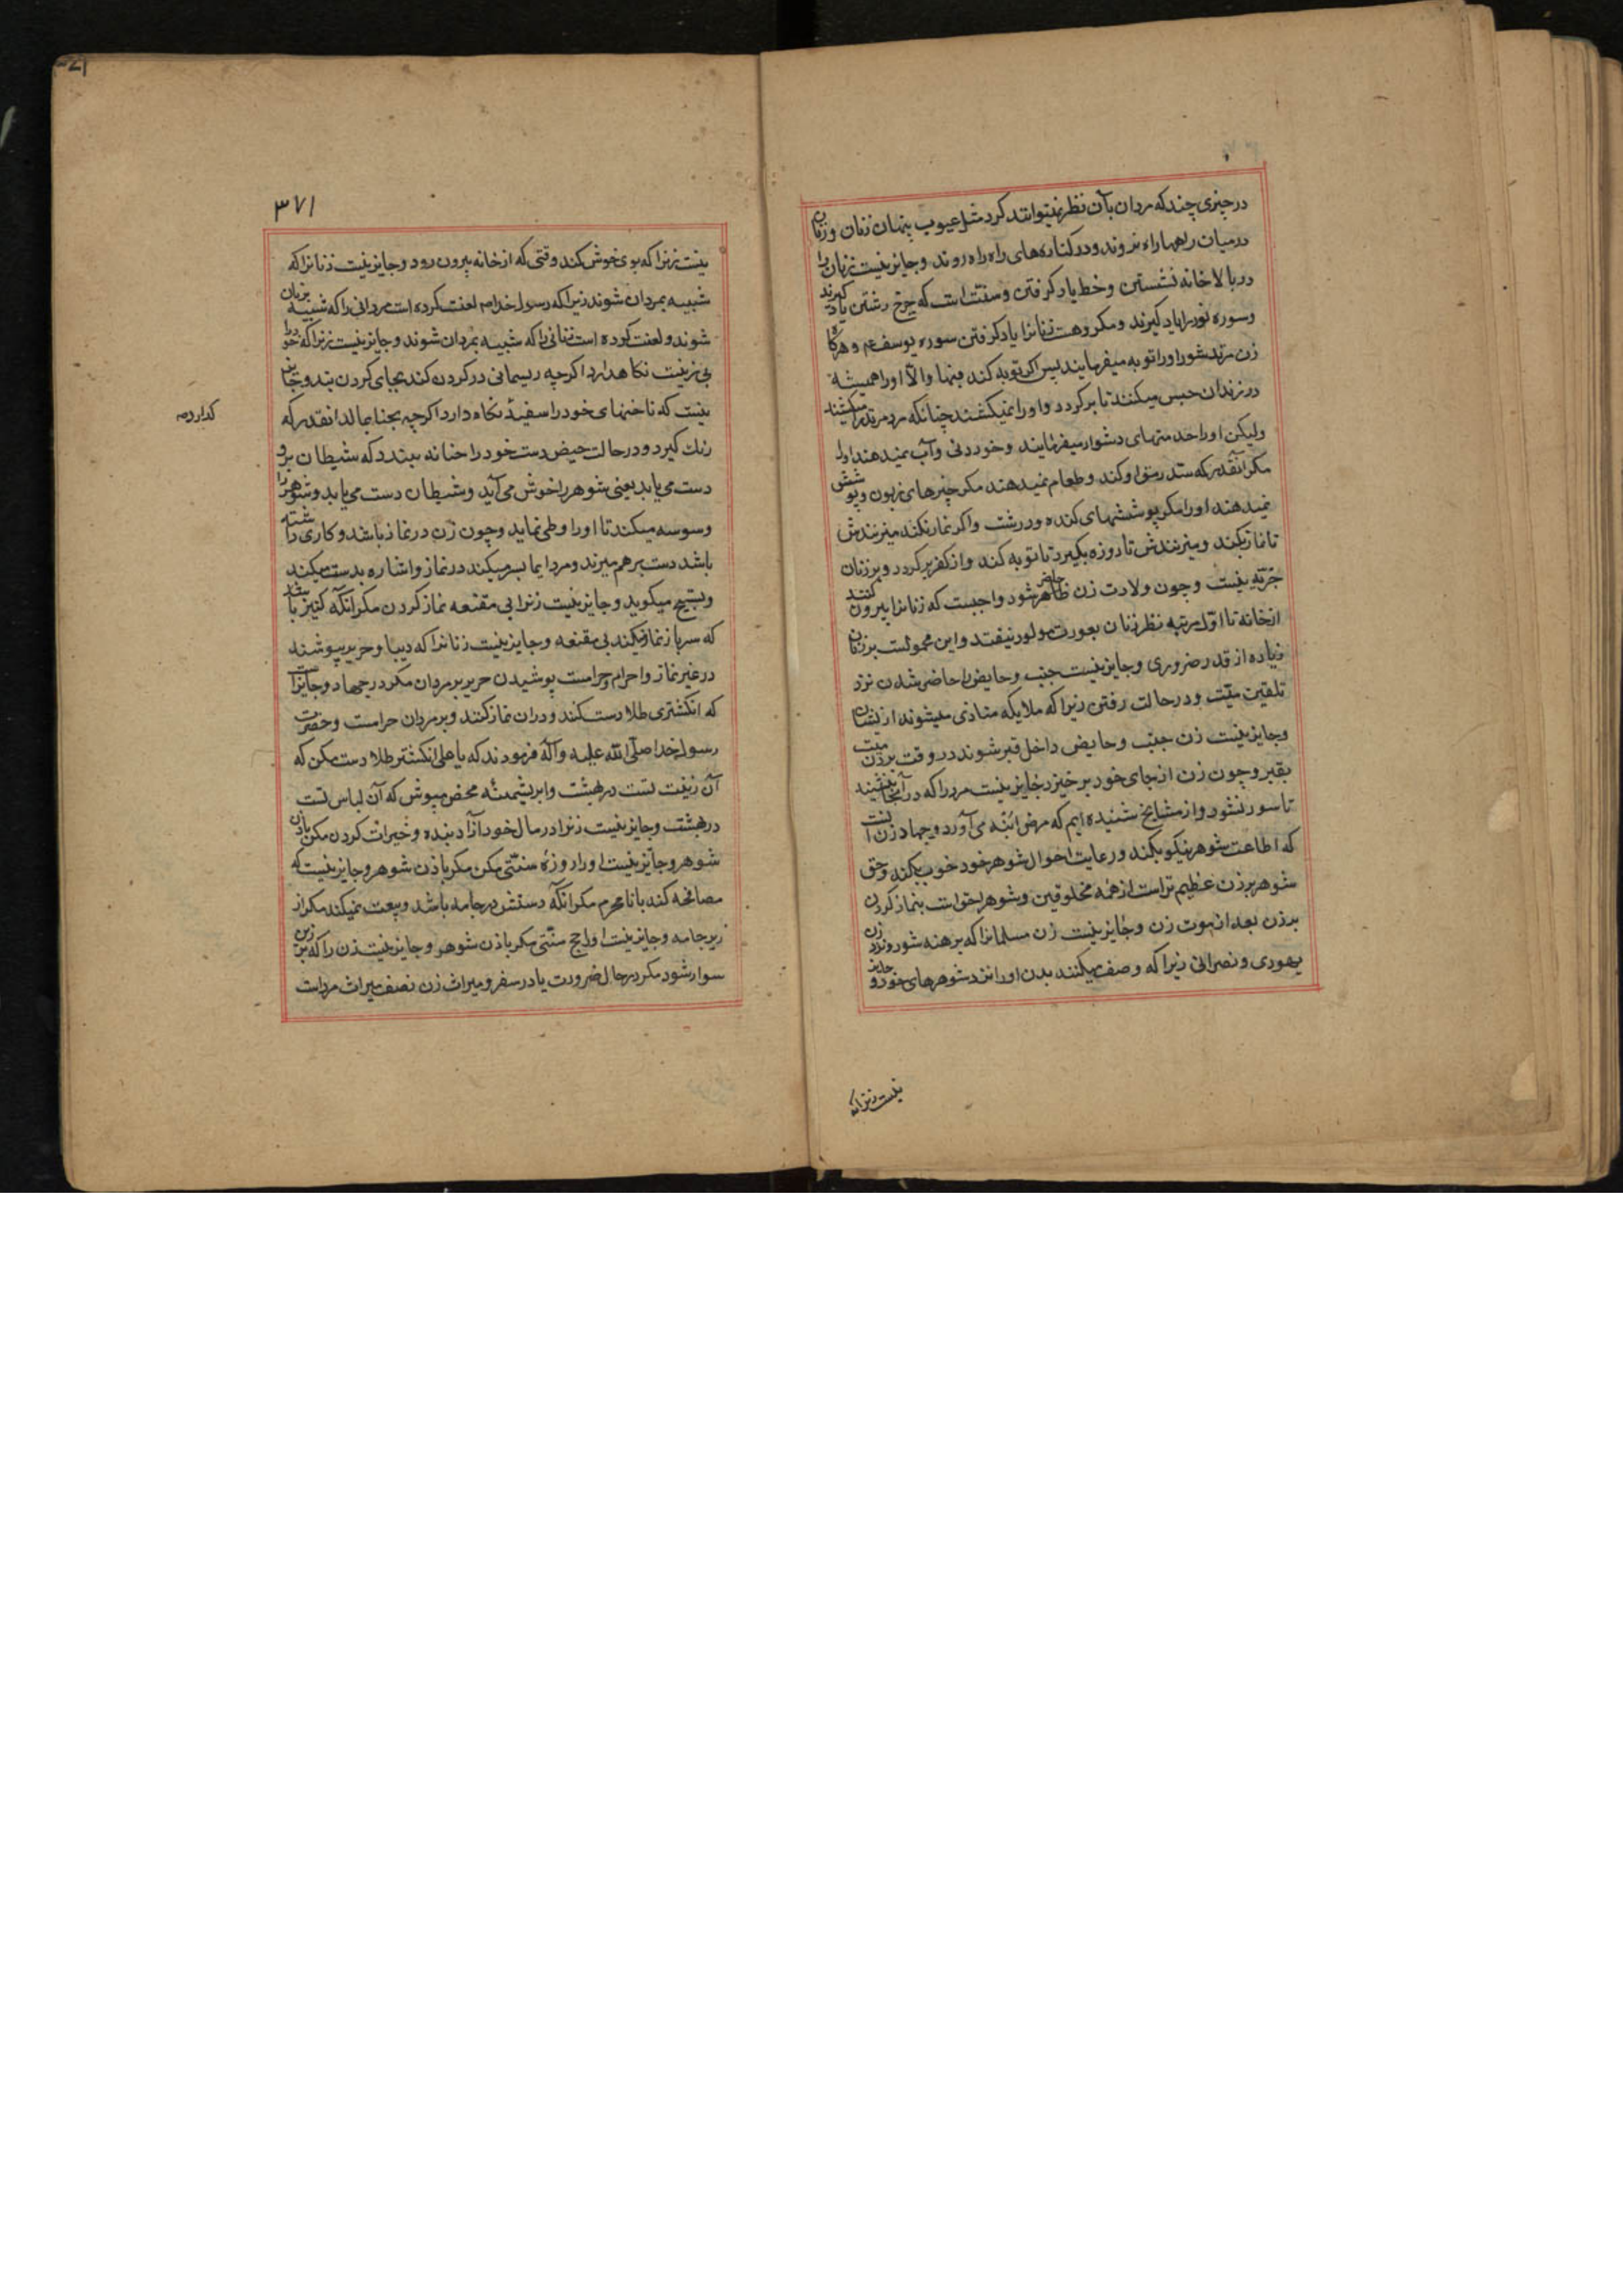 در چیزی چند که مردان بآن نظر نمیتوانند کرد مثل عیوب پنهان زنان و زنان
در میان راهها راه نروند و در کنارهای راه راه روند و جایز نیست زنان را
در بالاخانه نشستن و خط یاد کرفتن و سنت است که چرخ رشتن یاد کیرند
و سوره نور را یاد کیرند و مکروهست زنانرا یاد کرفتن سوره یوسف ع م و هرکاه
زن مرتد شود او را توبه میفرمایند پس اکر توبه کند فبها و الّا او را همیشه
در زندان حبس میکنند تا بر کردد و او را نمیکشند چنانکه مرد مرتد را میکشند
ولیکن او را خدمتهای دشوار میفرمایند و خوردنی و آب نمیدهند او را
مکر آنقدر که سد رمق او کند و طعام نمیدهند مکر چیزهای زبون و پوشش
نمیدهند او را مکر پوششهای کنده و درشت و اکر نماز نکند میزنندش
تا نماز بکند و میزنندش تا روزه بکیرد تا توبه کند و از کفر بر کردد و بر زنان
جزیه نیست و چون ولادت زن حاضر شود واجبست که زنانرا بیرون کنند
از خانه تا اوّل مرتبه نظر زنان بعورت مولود نیفتد و این محمولست بر زنان
زیاده از قدر ضروری و جایز نیست جنب و حایض را حاضر شدن نزد
تلقین میّت و در حالت رفتن زیرا که ملایکه متاذی میشوند از ایشان
و جایز نیست زن جنب و حایض داخل قبر شوند در وقت بردن میت
بقبر و چون زن از جای خود بر خیزد جایز نیست مرد را که در آنجا بنشیند
تا سرد نشود و از مشایخ شنیده ایم که مرض ابنه می آورد و جهاد زن آنست
که اطاعت شوهر نیکو بکند و رعایت احوال شوهر خود خوب بکند و حق
شوهر بر زن عظیم تر است از همه مخلوقین و شوهر احق است بنماز کردن
بر زن بعد از موت زن و جایز نیست زن مسلمانرا که برهنه شود نزد زن
یهودی و نصرانی زیرا که وصف میکنند بدن او را نزد شوهرهای خود و جایز
نیست زنرا که
۳۷۱
نیست زنرا که بوی خوش کند وقتی که از خانه بیرون رود و جایز نیست زنانرا که
شبیه بمردان شوند زیرا که رسول خدا ص م لعنت کرده است مردانی را که شبیه بزنان
شوند و لعنت کرده است زنانی را که شبیه بمردان شوند و جایز نیست زنرا که خود را
بی زینت نکاهدارد اکرچه ریسمانی در کردن کند بجای کردن بند و جایز
نیست که ناخنهای خود را سفید نکاه دارد اکرچه بحنا بمالد انقدر که
رنک کیرد و در حالت حیض دست خود را حنا نه بندد که شیطان برو
دست می یابد یعنی شوهر را خوش می آید و شیطان دست می یابد و شوهر را
وسوسه میکند تا او را وطی نماید و چون زن در نماز باشد و کاری داشته
باشد دست بر هم میزند و مرد ایما بسر میکند در نماز و اشاره بدست میکند
و تسبیح میکوید و جایز نیست زنرا بی مقنعه نماز کردن مکر آنکه کنیز باشد
که سر باز نماز میکند بی مقنعه و جایز نیست زنانرا که دیبا و حریر بپوشند
در غیر نماز و احرام و حرامست پوشیدن حریر بر مردان مکر در جهاد و جایز است
که انکشتری طلا دست کنند و در ان نماز کنند و بر مردان حرامست و حضرت
رسول خدا صلی الله علیه و آله فرمودند که یا علی انکشتر طلا دست مکن که
آن زینت تست در بهشت و ابریشمینه محض مپوش که آن لباس تست
در بهشت و جایز نیست زنرا در مال خود آزاد بنده و خیرات کردن مکر باذن
شوهر و جایز نیست او را روزه سنتی مکر باذن شوهر و جایز نیست که
مصافحه کند با نا محرم مکر آنکه دستش در جامه باشد و بیعت نمیکند مکر از
زیر جامه و جایز نیست او را حج سنتی مکر باذن شوهر و جایز نیست زن را که بر زین
سوار شود مکر در حال ضرورت یا در سفر و میراث زن نصف میراث مرد است